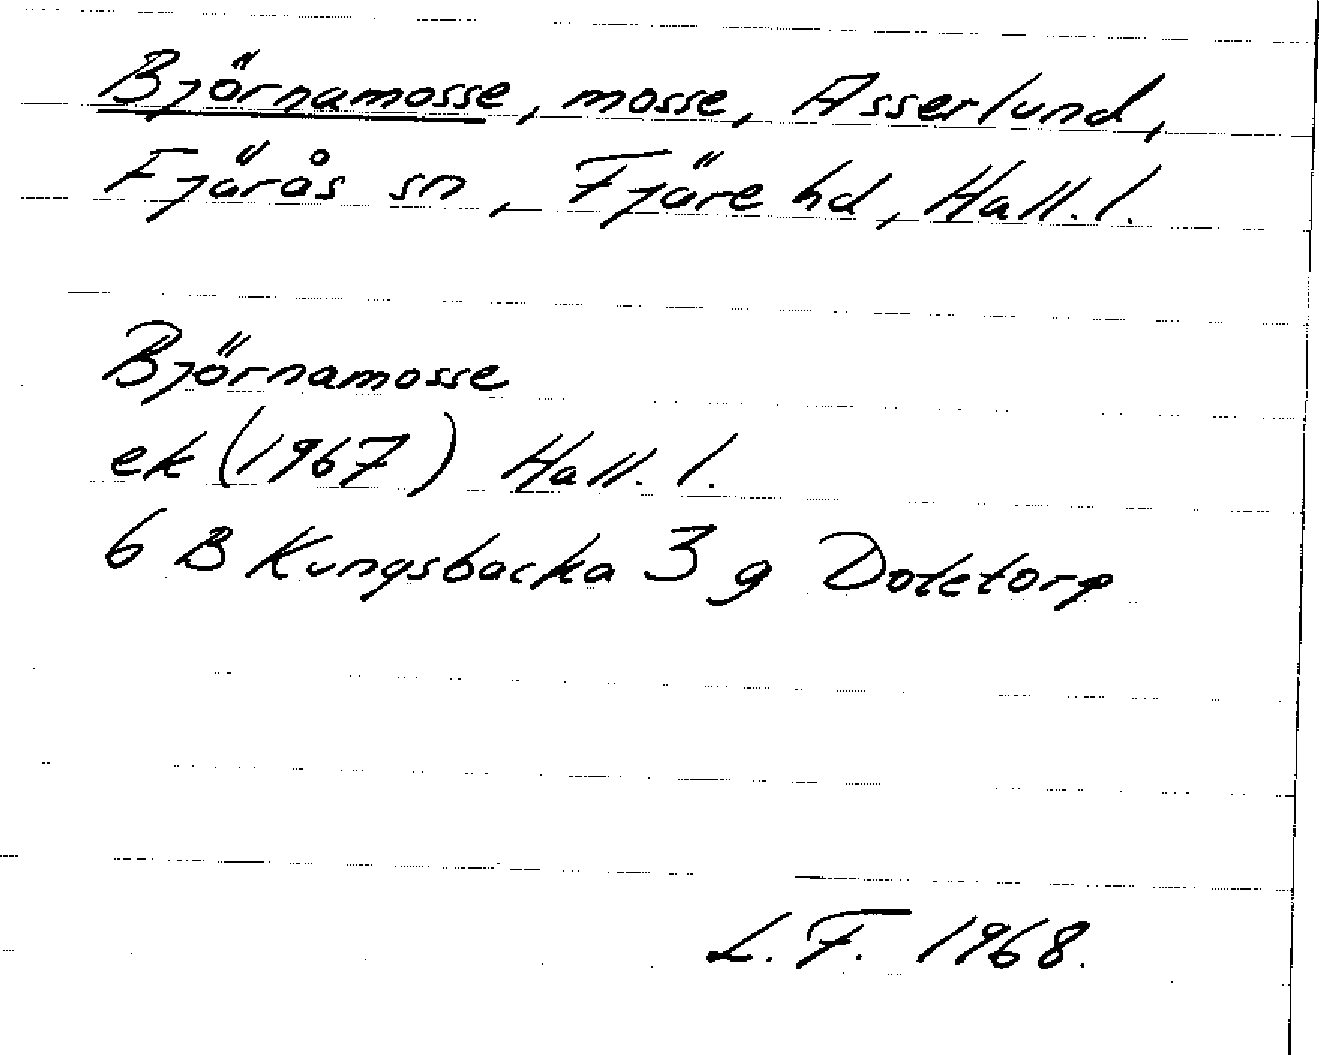 Björnamosse, mosse, Asserlund,
Fjärås sn, Fjäre hd, Hall. l.
Björnamosse
ek (1967) Hall. l.
6 B Kungsbacka 3 g Dotetorp
L. F. 1968.